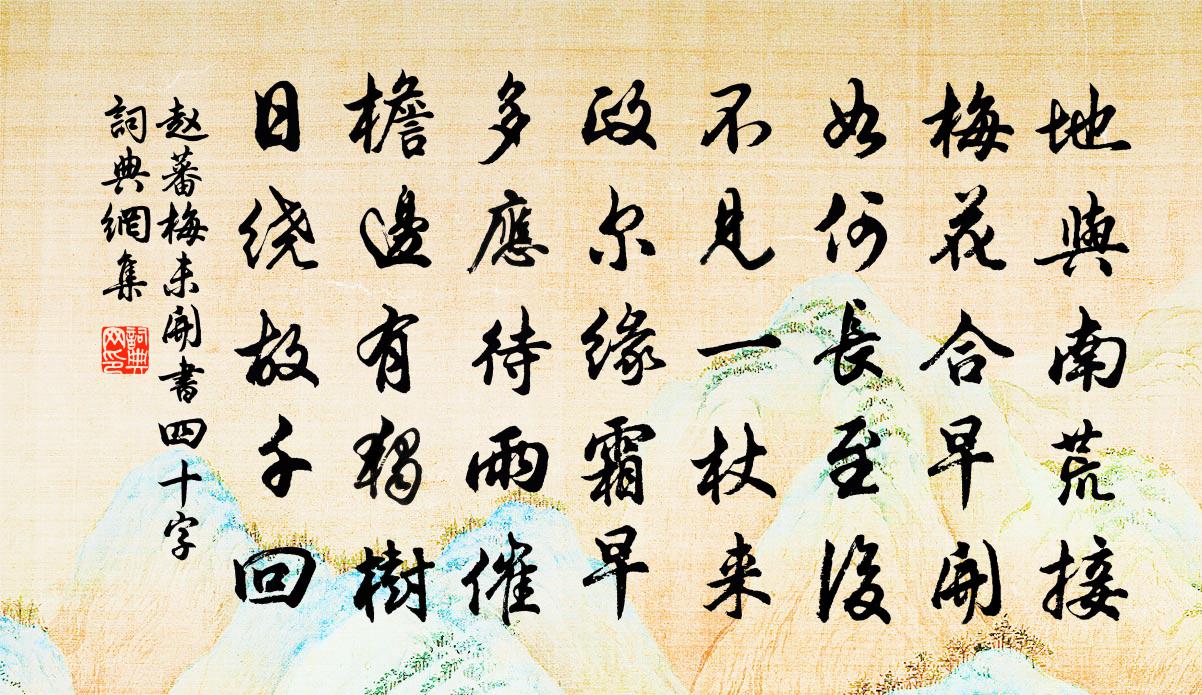 地與南荒接
梅花合早開
如何長至後
不見一杖来
政尔緣霜早
多應待雨催
檐邊有獨樹
日绕故千回
赵蕃梅未開書四十字
詞典網集
詞典网印